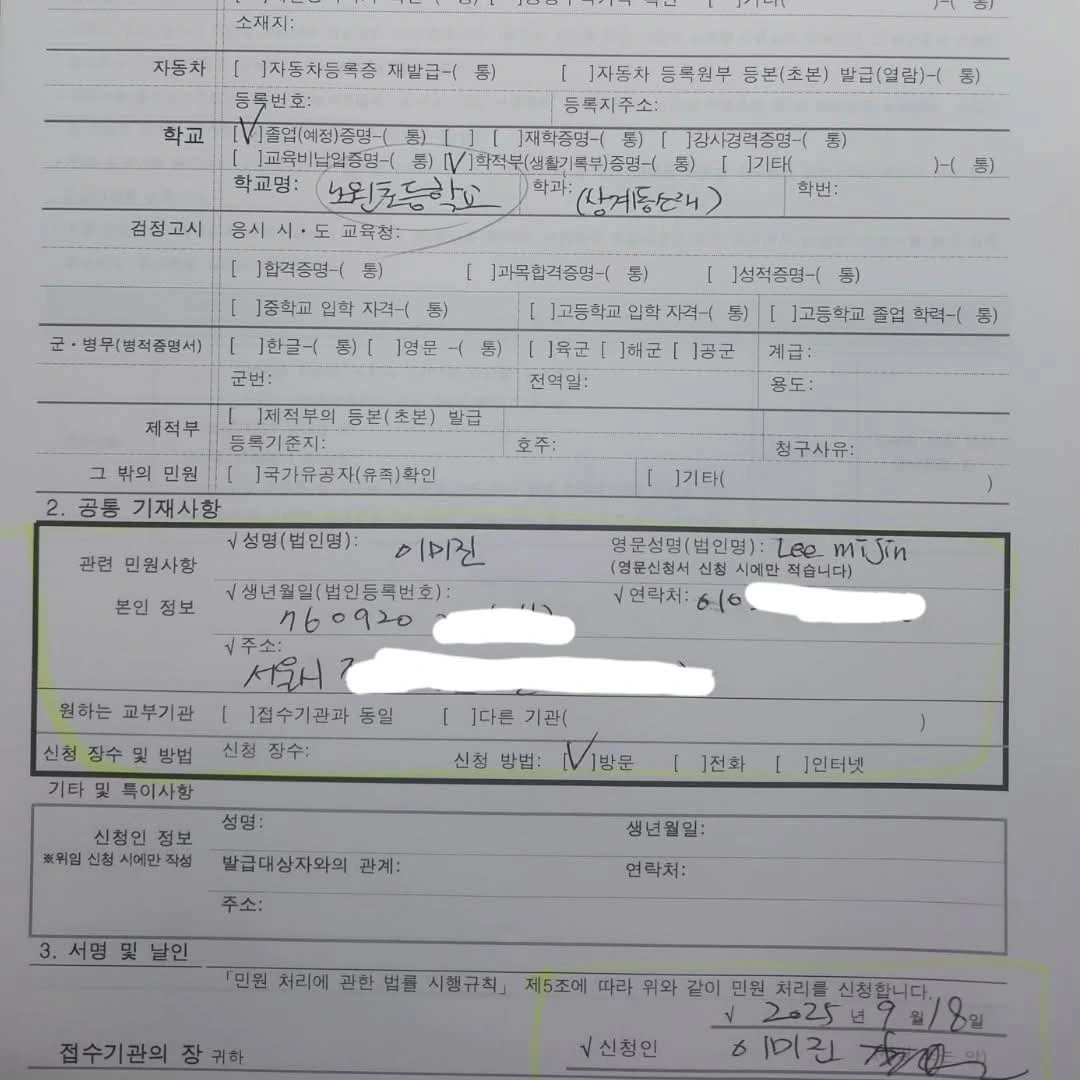 소재지:
자동차 [ ]자동차등록증 재발급-( 통) [ ]자동차 등록원부 등본(초본) 발급(열람)-( 통)
등록번호: 등록지주소:
학교 [√]졸업(예정)증명-( 통) [ ] [ ]재학증명-( 통) [ ]강사경력증명-( 통)
[ ]교육비납입증명-( 통) [√]학적부(생활기록부)증명-( 통) [ ]기타( )-( 통)
학교명: 노원초등학교 학과: (상계동소재) 학번:
검정고시 응시 시·도 교육청:
[ ]합격증명-( 통) [ ]과목합격증명-( 통) [ ]성적증명-( 통)
[ ]중학교 입학 자격-( 통) [ ]고등학교 입학 자격-( 통) [ ]고등학교 졸업 학력-( 통)
군·병무(병적증명서) [ ]한글-( 통) [ ]영문 -( 통) [ ]육군 [ ]해군 [ ]공군 계급:
군번: 전역일: 용도:
제적부 [ ]제적부의 등본(초본) 발급
등록기준지: 호주: 청구사유:
그 밖의 민원 [ ]국가유공자(유족)확인 [ ]기타( )
2. 공통 기재사항
관련 민원사항 √성명(법인명): 이미진 영문성명(법인명): Lee mijin
(영문신청서 신청 시에만 적습니다)
본인 정보 √생년월일(법인등록번호): √연락처: 010
760920
√주소:
서울시
원하는 교부기관 [ ]접수기관과 동일 [ ]다른 기관( )
신청 장수 및 방법 신청 장수: 신청 방법: [√]방문 [ ]전화 [ ]인터넷
기타 및 특이사항
신청인 정보 성명: 생년월일:
※위임 신청 시에만 작성 발급대상자와의 관계: 연락처:
주소:
3. 서명 및 날인
「민원 처리에 관한 법률 시행규칙」 제5조에 따라 위와 같이 민원 처리를 신청합니다.
√ 2025 년 9 월 18 일
접수기관의 장 귀하 √신청인 이미진